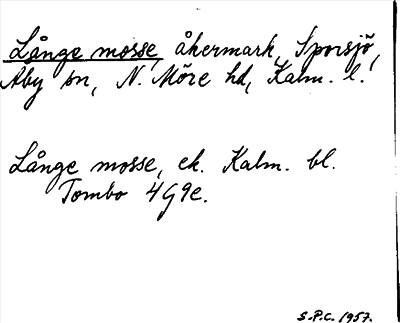 Långe mosse, åkermark, Sporsjö,
Åby sn, N. Möre hd, Kalm. l.
Långe mosse, ek. Kalm. bl.
Tombo 4G9e.
S.P.C. 1957.